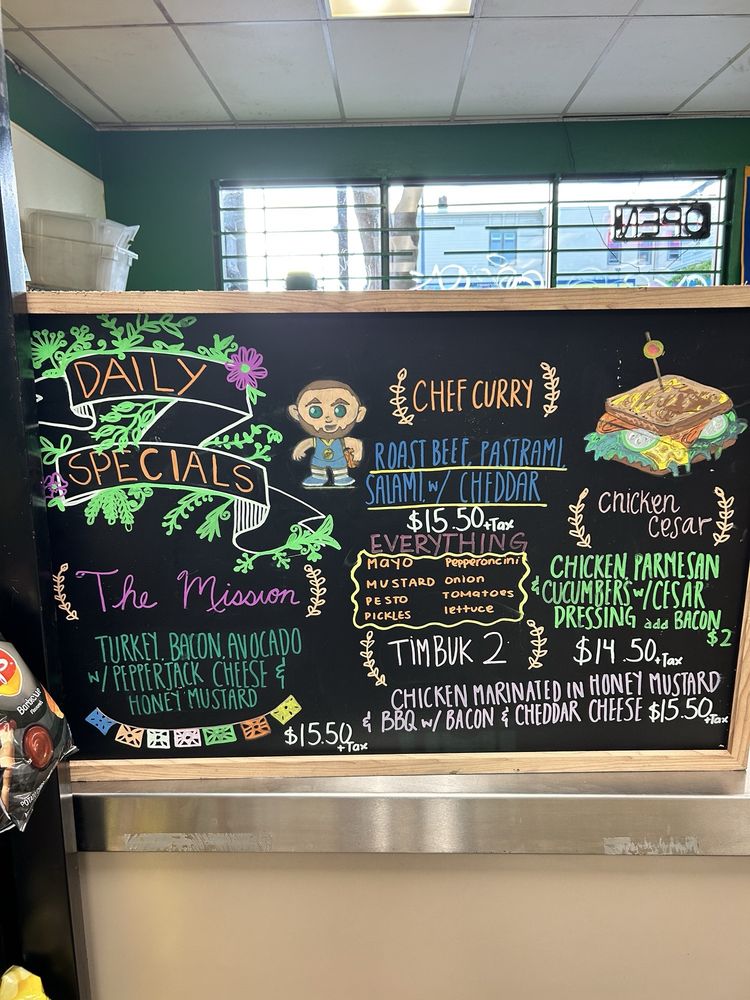 OPEN
DAILY
SPECIALS
The Mission
TURKEY, BACON, AVOCADO
W/ PEPPERJACK CHEESE &
HONEY MUSTARD
$15.50 +Tax
CHEF CURRY
ROAST BEEF, PASTRAMI,
SALAMI, W/ CHEDDAR
$15.50 +Tax
EVERYTHING
MAYO Pepperoncini
MUSTARD onion
PESTO TOMATOES
PICKLES lettuce
TIMBUK 2
CHICKEN MARINATED IN HONEY MUSTARD
& BBQ W/ BACON & CHEDDAR CHEESE $15.50 +Tax
chicken
cesar
CHICKEN, PARMESAN
& CUCUMBERS W/ CESAR
DRESSING add BACON
$2
$14.50 +Tax
Barbecue